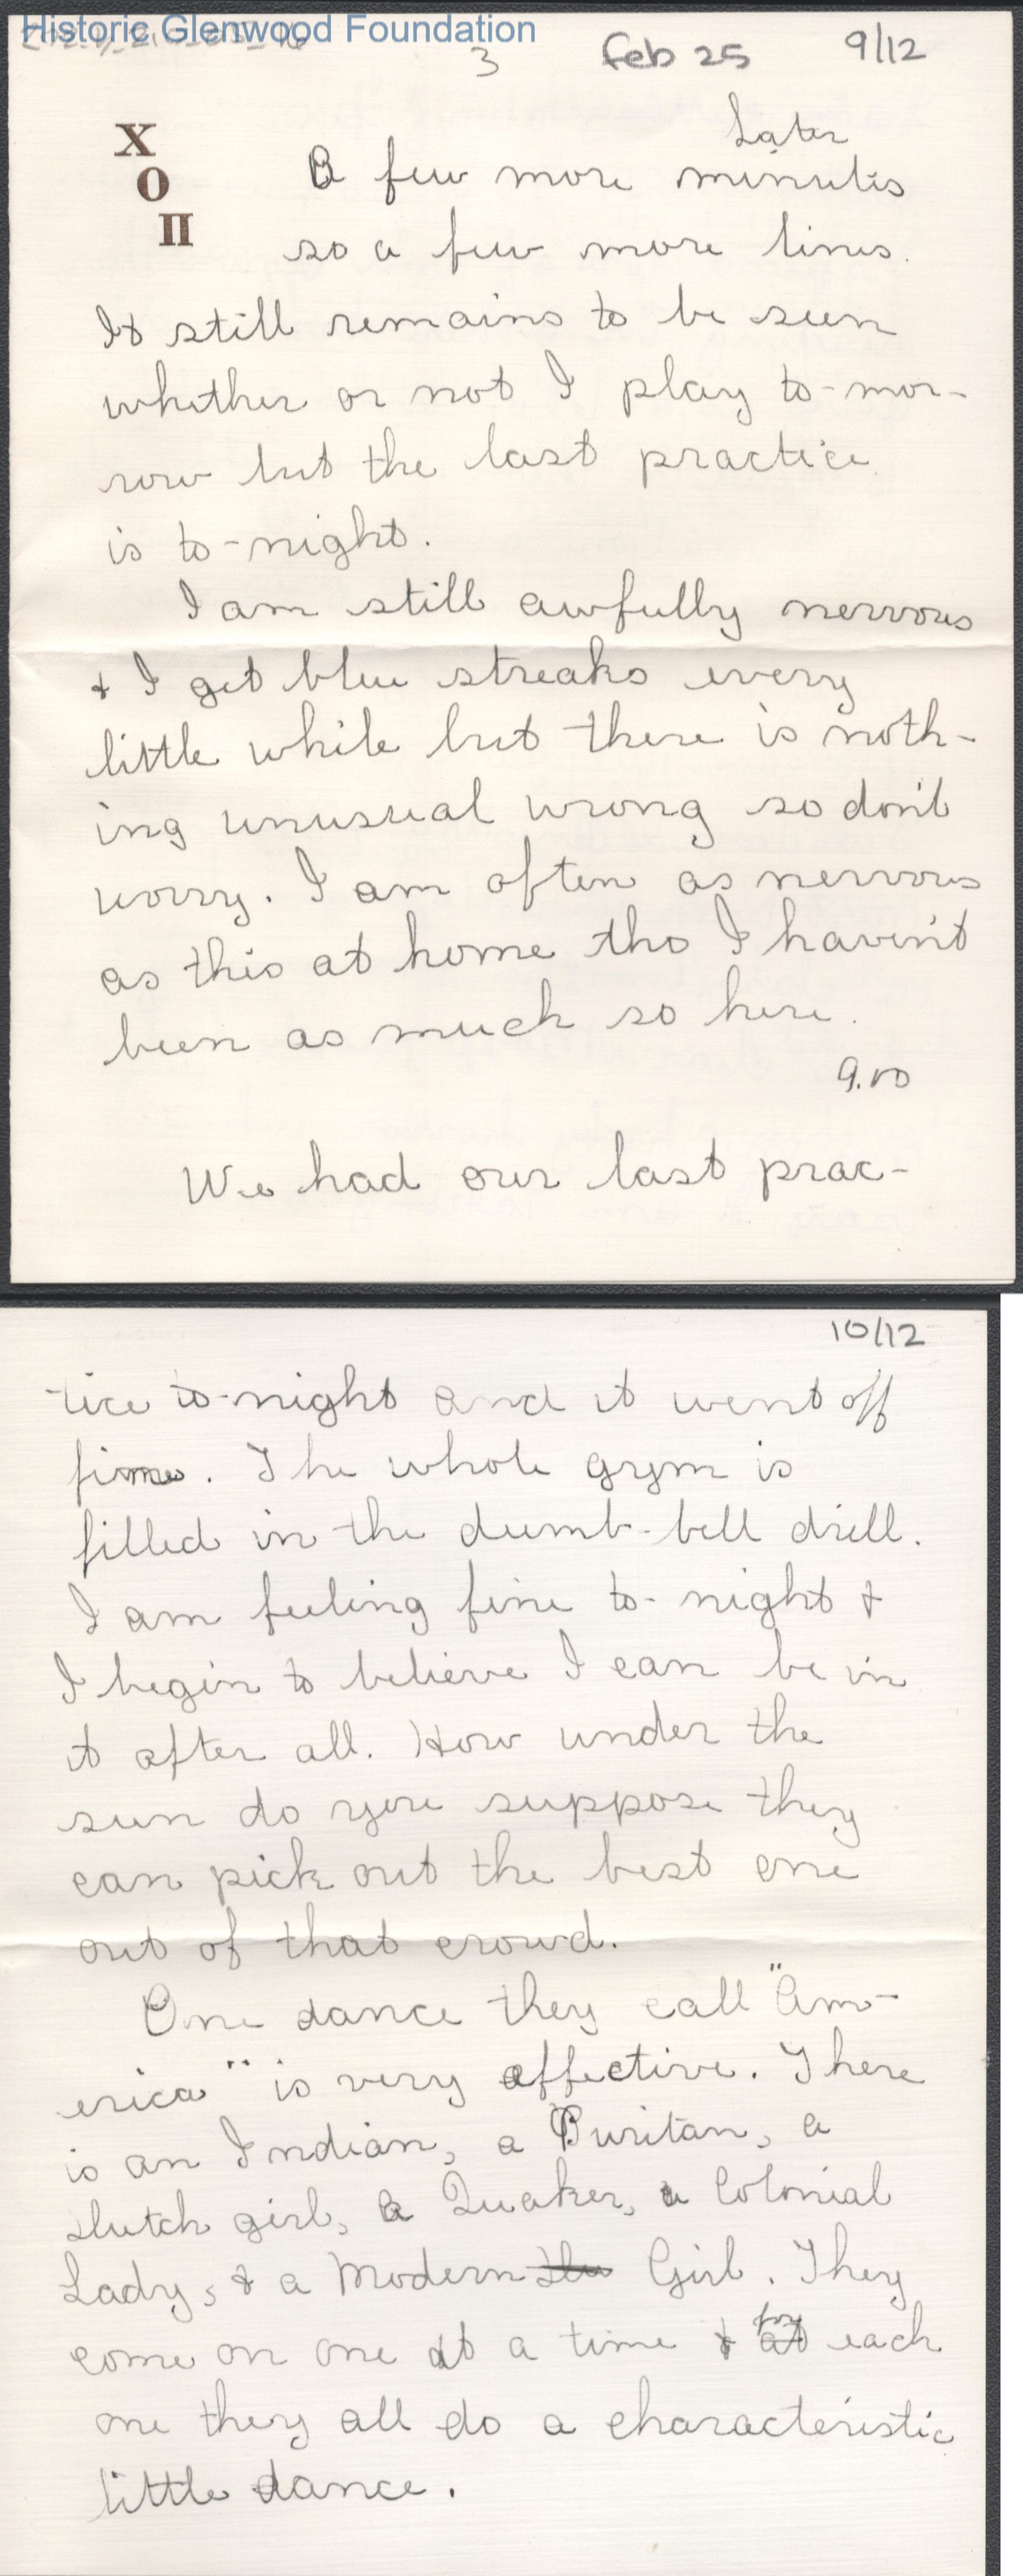 Historic Glenwood Foundation
3 Feb 25 9/12
X
O
II
Later
A few more minutes
so a few more lines.
It still remains to be seen
whether or not I play to-mor-
row but the last practice
is to-night.
I am still awfully nervous
& I get blue streaks every
little while but there is noth-
ing unusual wrong so don't
worry. I am often as nervous
as this at home tho I haven't
been as much so here.
9.00
We had our last prac-
10/12
tice to-night and it went off
fine. The whole gym is
filled in the dumb-bell drill.
I am feeling fine to-night &
I begin to believe I can be in
it after all. How under the
sun do you suppose they
can pick out the best one
out of that crowd.
One dance they call "Am-
erica" is very effective. There
is an Indian, a Puritan, a
dutch girl, a Quaker, a Colonial
Lady, & a Modern Girl. They
come on one at a time & for
at each
one they all do a characteristic
little dance.